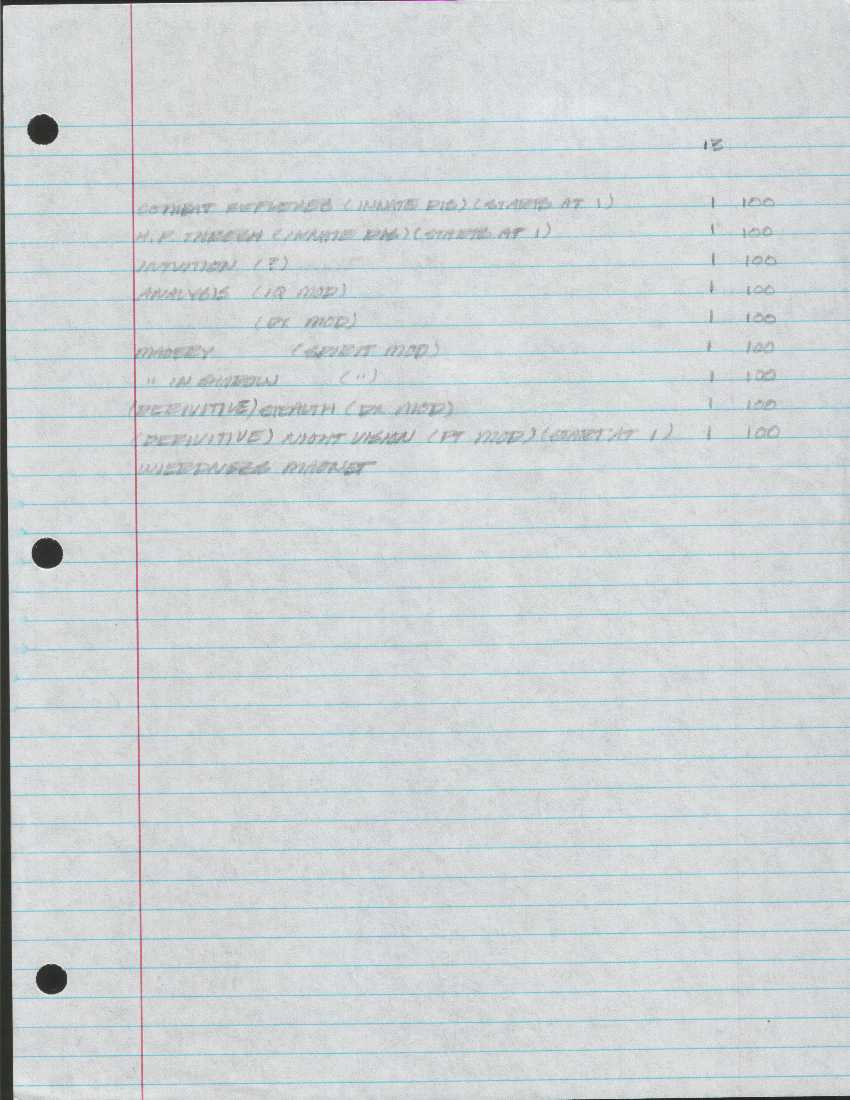 13
COMBAT REFLEXES (INNATE DIS) (STARTS AT 1) 1 100
H.P. (INNATE DIS) (STARTS AT 1) 1 100
INTUITION (?) 1 100
ANALYSIS (IQ MOD) 1 100
(PT MOD) 1 100
(SPIRIT MOD) 1 100
" IN SHADOW (") 1 100
(DERIVITIVE) STEALTH (DX MOD) 1 100
(DERIVITIVE) NIGHT VISION (PT MOD) (START AT 1) 1 100
WIERDNESS MAGNET